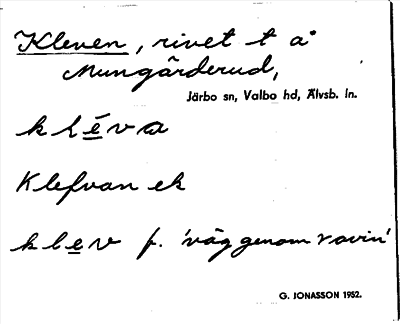 Kleven, rivet t å
Mungårderud,
Järbo sn, Valbo hd, Älvsb. ln.
klé̲va
Klefvan ek
kle̲v f. 'väg genom ravin'
G. JONASSON 1952.